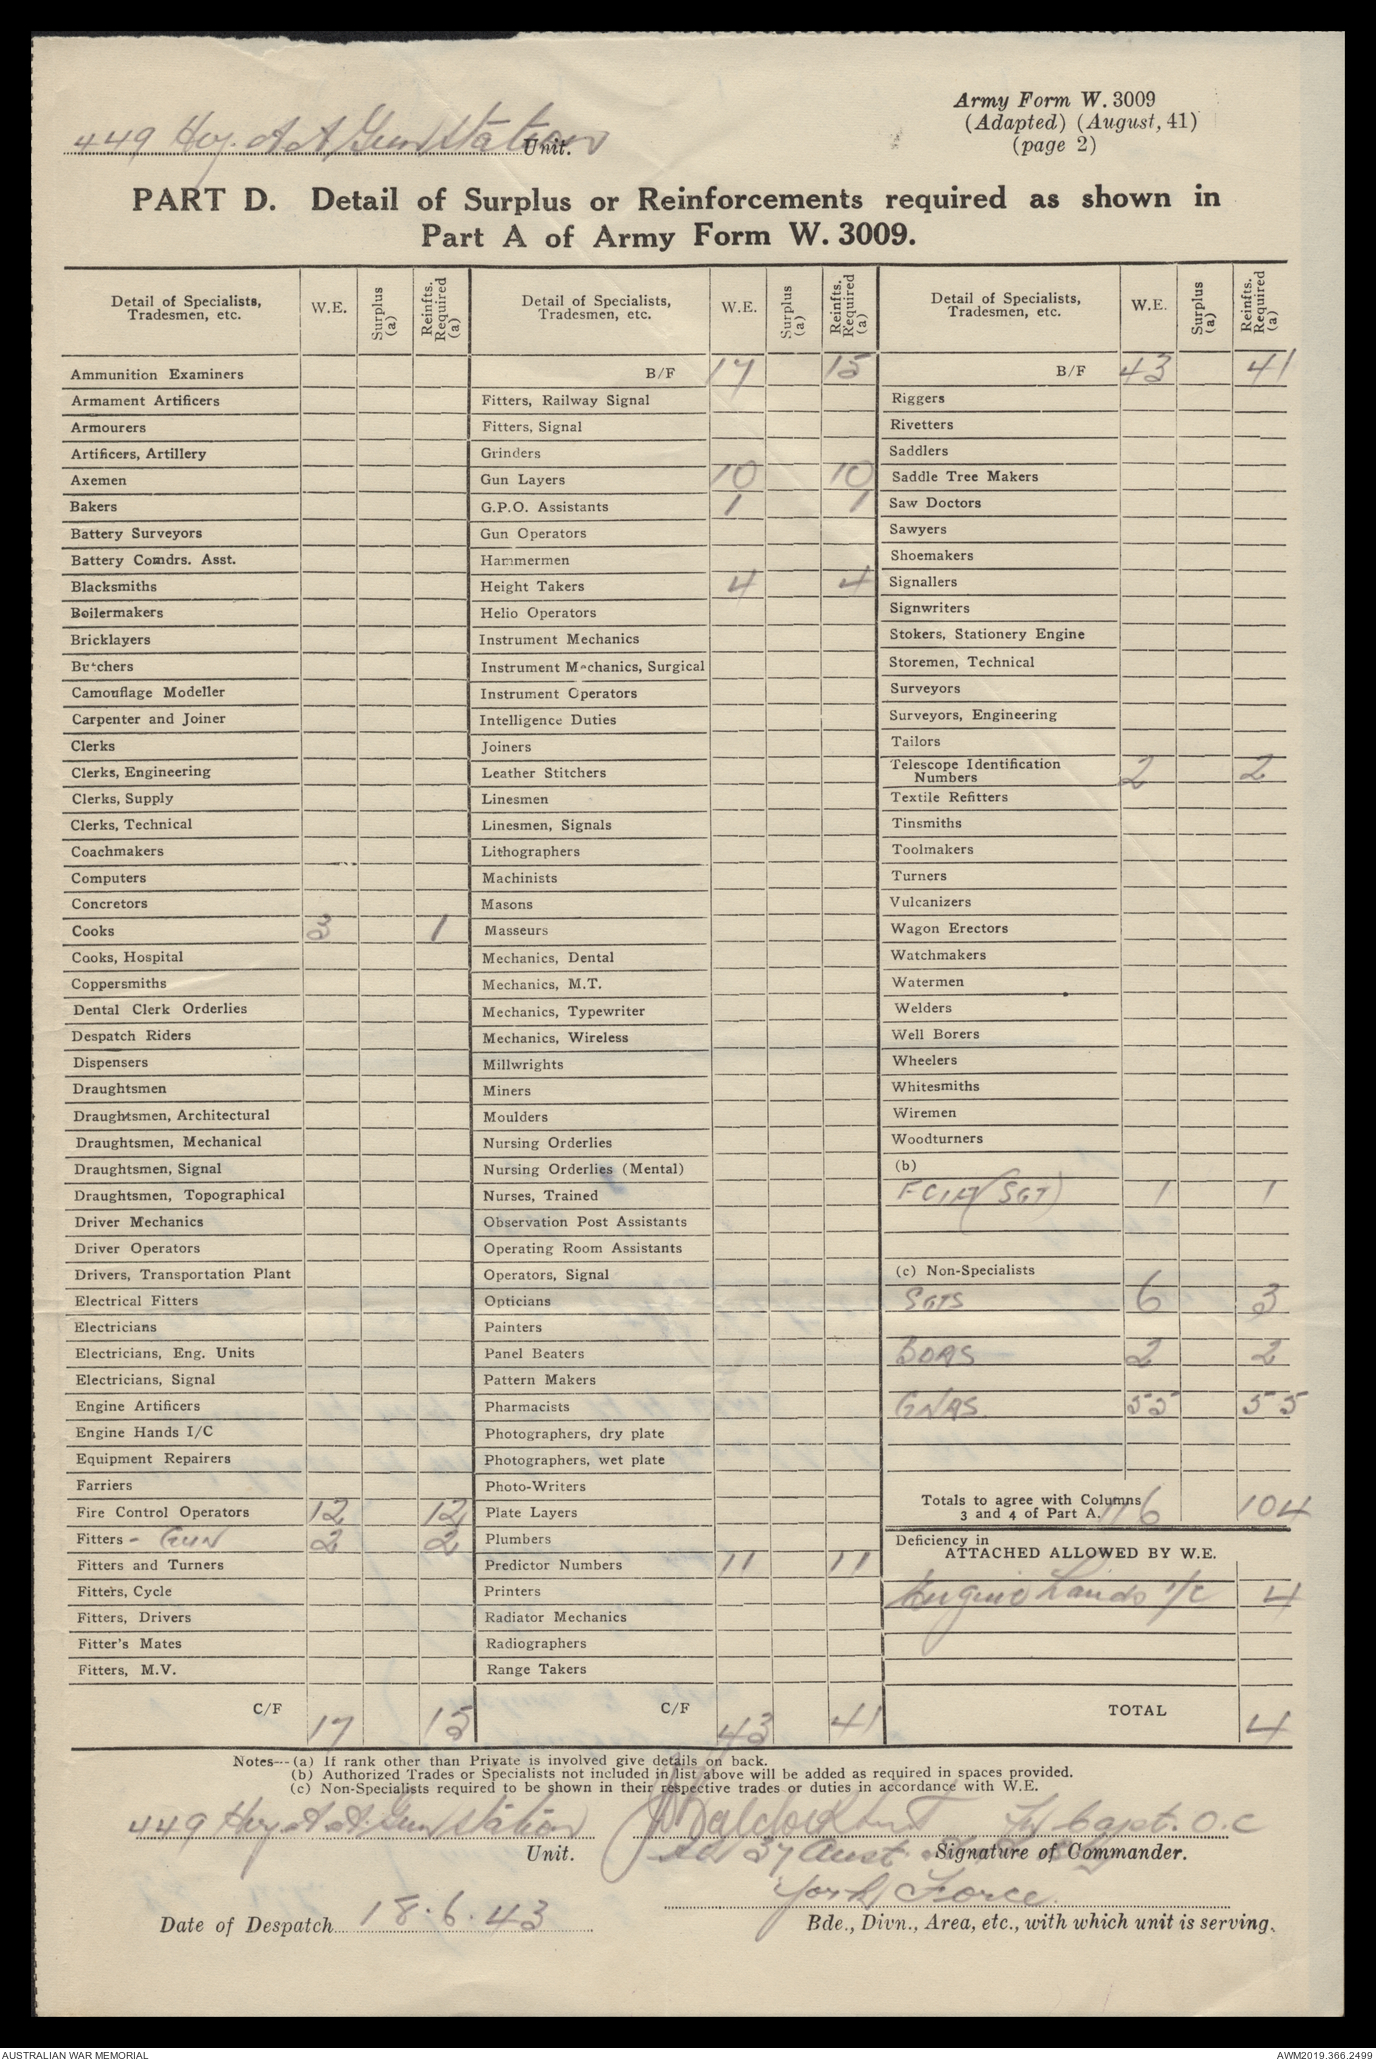 Army Form W. 3009
(Adapted) (August, 41)
(page 2)
449 Hvy. A A Gun Station Unit.
PART D. Detail of Surplus or Reinforcements required as shown in
Part A of Army Form W. 3009.
Detail of Specialists, Tradesmen, etc. W.E. Surplus (a) Reinfts. Required (a)
Ammunition Examiners
Armament Artificers
Armourers
Artificers, Artillery
Axemen
Bakers
Battery Surveyors
Battery Comdrs. Asst.
Blacksmiths
Boilermakers
Bricklayers
Butchers
Camouflage Modeller
Carpenter and Joiner
Clerks
Clerks, Engineering
Clerks, Supply
Clerks, Technical
Coachmakers
Computers
Concretors
Cooks 3 1
Cooks, Hospital
Coppersmiths
Dental Clerk Orderlies
Despatch Riders
Dispensers
Draughtsmen
Draughtsmen, Architectural
Draughtsmen, Mechanical
Draughtsmen, Signal
Draughtsmen, Topographical
Driver Mechanics
Driver Operators
Drivers, Transportation Plant
Electrical Fitters
Electricians
Electricians, Eng. Units
Electricians, Signal
Engine Artificers
Engine Hands I/C
Equipment Repairers
Farriers
Fire Control Operators 12 12
Fitters - GUN 2 2
Fitters and Turners
Fitters, Cycle
Fitters, Drivers
Fitter's Mates
Fitters, M.V.
C/F 17 15
Detail of Specialists, Tradesmen, etc. W.E. Surplus (a) Reinfts. Required (a)
B/F 17 15
Fitters, Railway Signal
Fitters, Signal
Grinders
Gun Layers 10 10
G.P.O. Assistants 1 1
Gun Operators
Hammermen
Height Takers 4 4
Helio Operators
Instrument Mechanics
Instrument Mechanics, Surgical
Instrument Operators
Intelligence Duties
Joiners
Leather Stitchers
Linesmen
Linesmen, Signals
Lithographers
Machinists
Masons
Masseurs
Mechanics, Dental
Mechanics, M.T.
Mechanics, Typewriter
Mechanics, Wireless
Millwrights
Miners
Moulders
Nursing Orderlies
Nursing Orderlies (Mental)
Nurses, Trained
Observation Post Assistants
Operating Room Assistants
Operators, Signal
Opticians
Painters
Panel Beaters
Pattern Makers
Pharmacists
Photographers, dry plate
Photographers, wet plate
Photo-Writers
Plate Layers
Plumbers
Predictor Numbers 11 11
Printers
Radiator Mechanics
Radiographers
Range Takers
C/F 43 41
Detail of Specialists, Tradesmen, etc. W.E. Surplus (a) Reinfts. Required (a)
B/F 43 41
Riggers
Rivetters
Saddlers
Saddle Tree Makers
Saw Doctors
Sawyers
Shoemakers
Signallers
Signwriters
Stokers, Stationery Engine
Storemen, Technical
Surveyors
Surveyors, Engineering
Tailors
Telescope Identification
Numbers 2 2
Textile Refitters
Tinsmiths
Toolmakers
Turners
Vulcanizers
Wagon Erectors
Watchmakers
Watermen
Welders
Well Borers
Wheelers
Whitesmiths
Wiremen
Woodturners
(b)
(SGT) 1 1
(c) Non-Specialists
SGTS 6 3
BDRS 2 2
GNRS. 55 55
Totals to agree with Columns
3 and 4 of Part A. 116 104
Deficiency in
ATTACHED ALLOWED BY W.E.
Engine Hands I/C 4
TOTAL 4
Notes--(a) If rank other than Private is involved give details on back.
(b) Authorized Trades or Specialists not included in list above will be added as required in spaces provided.
(c) Non-Specialists required to be shown in their respective trades or duties in accordance with W.E.
449 Hvy A A. Gun Station
Unit.
Capt. O.C
37 Aust
Signature of Commander.
York Force.
Date of Despatch 18.6.43
Bde., Divn., Area, etc., with which unit is serving.
AUSTRALIAN WAR MEMORIAL
AWM2019.366.2499